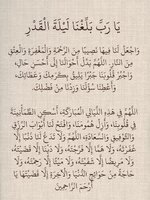 يَا رَبِّ بَلِّغْنَا لَيْلَةَ الْقَدْرِ
وَاجْعَلْ لَنَا فِيهَا نَصِيبًا مِنَ الرَّحْمَةِ وَالْمَغْفِرَةِ وَالْعِتْقِ
مِنَ النَّارِ. اللَّهُمَّ بَدِّلْ أَحْوَالَنَا إِلَى أَحْسَنِ حَالٍ،
وَاجْبُرْ قُلُوبَنَا جَبْرًا يَلِيقُ بِكَرَمِكَ وَعَطَائِكَ،
وَأَعْطِنَا سُؤْلَنَا وَزِدْنَا مِنْ فَضْلِكَ.
اللَّهُمَّ فِي هَذِهِ اللَّيَالِي الْمُبَارَكَةِ، أَسْكِنِ الطُّمَأْنِينَةَ
فِي قُلُوبِنَا، وَأَزِلْ هُمُومَنَا، وَافْتَحْ لَنَا أَبْوَابَ الرِّزْقِ
وَالتَّوْفِيقِ وَالسَّعَادَةِ. اللَّهُمَّ لَا تَدَعْ لَنَا ذَنْبًا إِلَّا
غَفَرْتَهُ، وَلَا هَمًّا إِلَّا فَرَّجْتَهُ، وَلَا دَيْنًا إِلَّا قَضَيْتَهُ،
وَلَا مَرِيضًا إِلَّا شَفَيْتَهُ، وَلَا مَيِّتًا إِلَّا رَحِمْتَهُ، وَلَا
حَاجَةً مِنْ حَوَائِجِ الدُّنْيَا وَالْآخِرَةِ إِلَّا قَضَيْتَهَا يَا
أَرْحَمَ الرَّاحِمِينَ